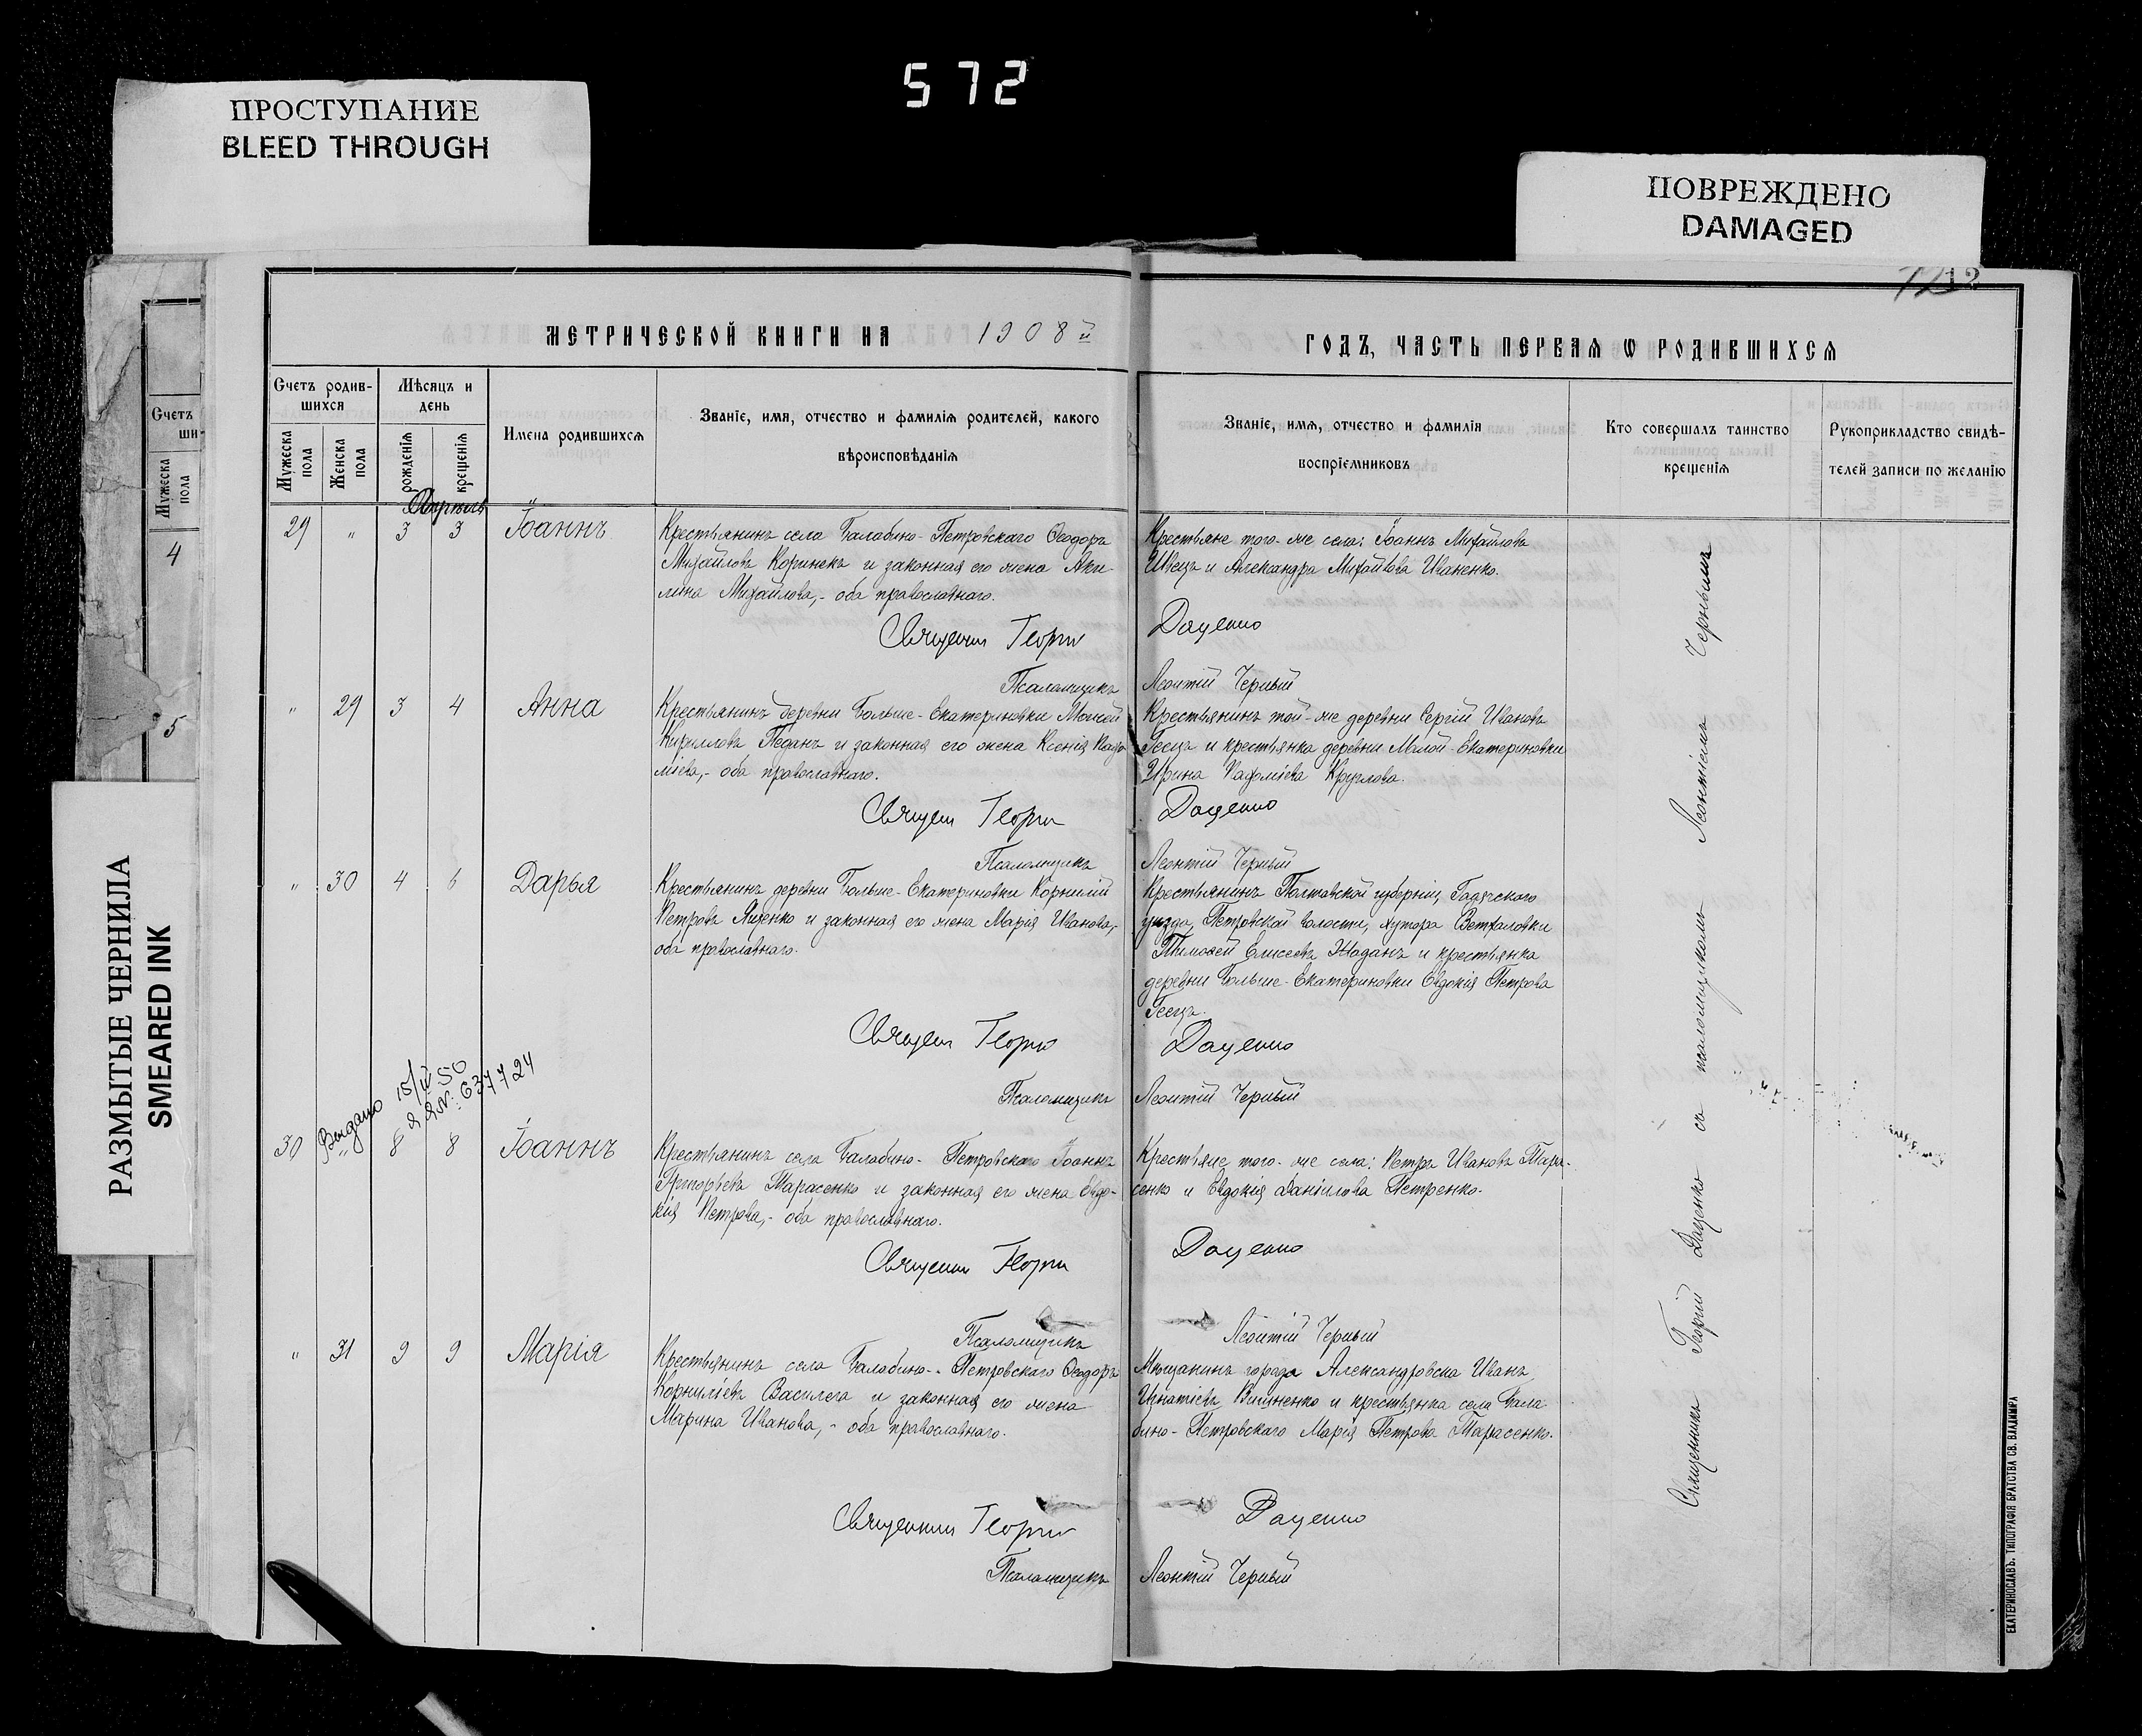 572
ПРОСТУПАНИЕ
BLEED THROUGH
ПОВРЕЖДЕНО
DAMAGED
РАЗМЫТЫЕ ЧЕРНИЛА
SMEARED INK
Счетъ
ши-
Мужеска
пола
4
5
12
МЕТРИЧЕСКОЙ КНИГИ НА 1908й
ГОДЪ, ЧАСТЬ ПЕРВАЯ Ѡ РОДИВШИХСЯ
Счетъ родив-
шихся
Мужеска
пола
Женска
пола
Мѣсяцъ и
день
рожденія
крещенія
Имена родившихся
Званіе, имя, отчество и фамилія родителей, какого
вѣроисповѣданія
Званіе, имя, отчество и фамилія
воспріемниковъ
Кто совершалъ таинство
крещенія
Рукоприкладство свидѣ-
телей записи по желанію
Апрѣль
29 " 3 3 Іоаннъ
Крестьянинъ села Балабино-Петровскаго Ѳеодоръ
Михайловъ Коринекъ и законная его жена Аки-
лина Михайлова,- оба православнаго.
Крестьяне того-же села: Іоаннъ Михайловъ
Швецъ и Александра Михайлова Иваненко.
Священник Георгий Даценко
Псаломщикъ Леонтій Черный
" 29 3 4 Анна
Крестьянинъ деревни Больше-Екатериновки Моисей
Кирилловъ Педанъ и законная его жена Ксенія Пахо-
міева,- оба православнаго.
Крестьянинъ той-же деревни Сергій Ивановъ
Геецъ и крестьянка деревни Малой-Екатериновки
Ирина Пахоміева Круглова.
Священ Георги Даценко
Псаломщикъ Леонтій Черный
" 30 4 6 Дарья
Крестьянинъ деревни Больше-Екатериновки Корнилій
Петровъ Яценко и законная его жена Марія Иванова,-
оба православнаго.
Крестьянинъ Полтавской губерніи, Гадячского
уѣзда, Петровской волости, хутора Ветхаловки
Тимоѳей Елисеевъ Жаданъ и крестьянка
деревни Больше-Екатериновки Евдокія Петрова
Геецъ.
Священ Георги Даценко
Псаломщикъ Леонтій Черный
Выдано 15/IV 50
№ 637724
30 " 8 8 Іоаннъ
Крестьянинъ села Балабино-Петровскаго Іоаннъ
Григорьевъ Тарасенко и законная его жена Евдо-
кія Петрова,- оба православнаго.
Крестьяне того-же села: Петръ Ивановъ Тара-
сенко и Евдокія Даніилова Петренко.
Священник Георги Даценко
Псаломщикъ Леонтій Черный
" 31 9 9 Марія
Крестьянинъ села Балабино-Петровскаго Ѳеодоръ
Корниліевъ Василега и законная его жена
Марина Иванова,- оба православнаго.
Мѣщанинъ города Александровска Иванъ
Игнатіевъ Вишненко и крестьянка села Бала-
бино-Петровскаго Марія Петрова Тарасенко.
Священник Георги Даценко
Псаломщикъ Леонтій Черный
Священникъ Георгій Даценко съ псаломщикомъ Леонтіемъ Чернымъ
ЕКАТЕРИНОСЛАВЪ. ТИПОГРАФІЯ БРАТСТВА СВ. ВЛАДИМІРА